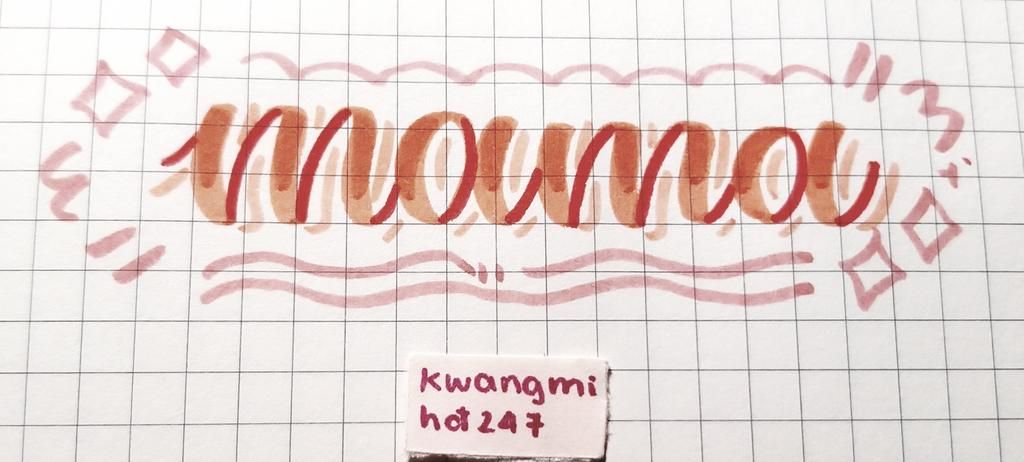 mama
kwangmi
hot247